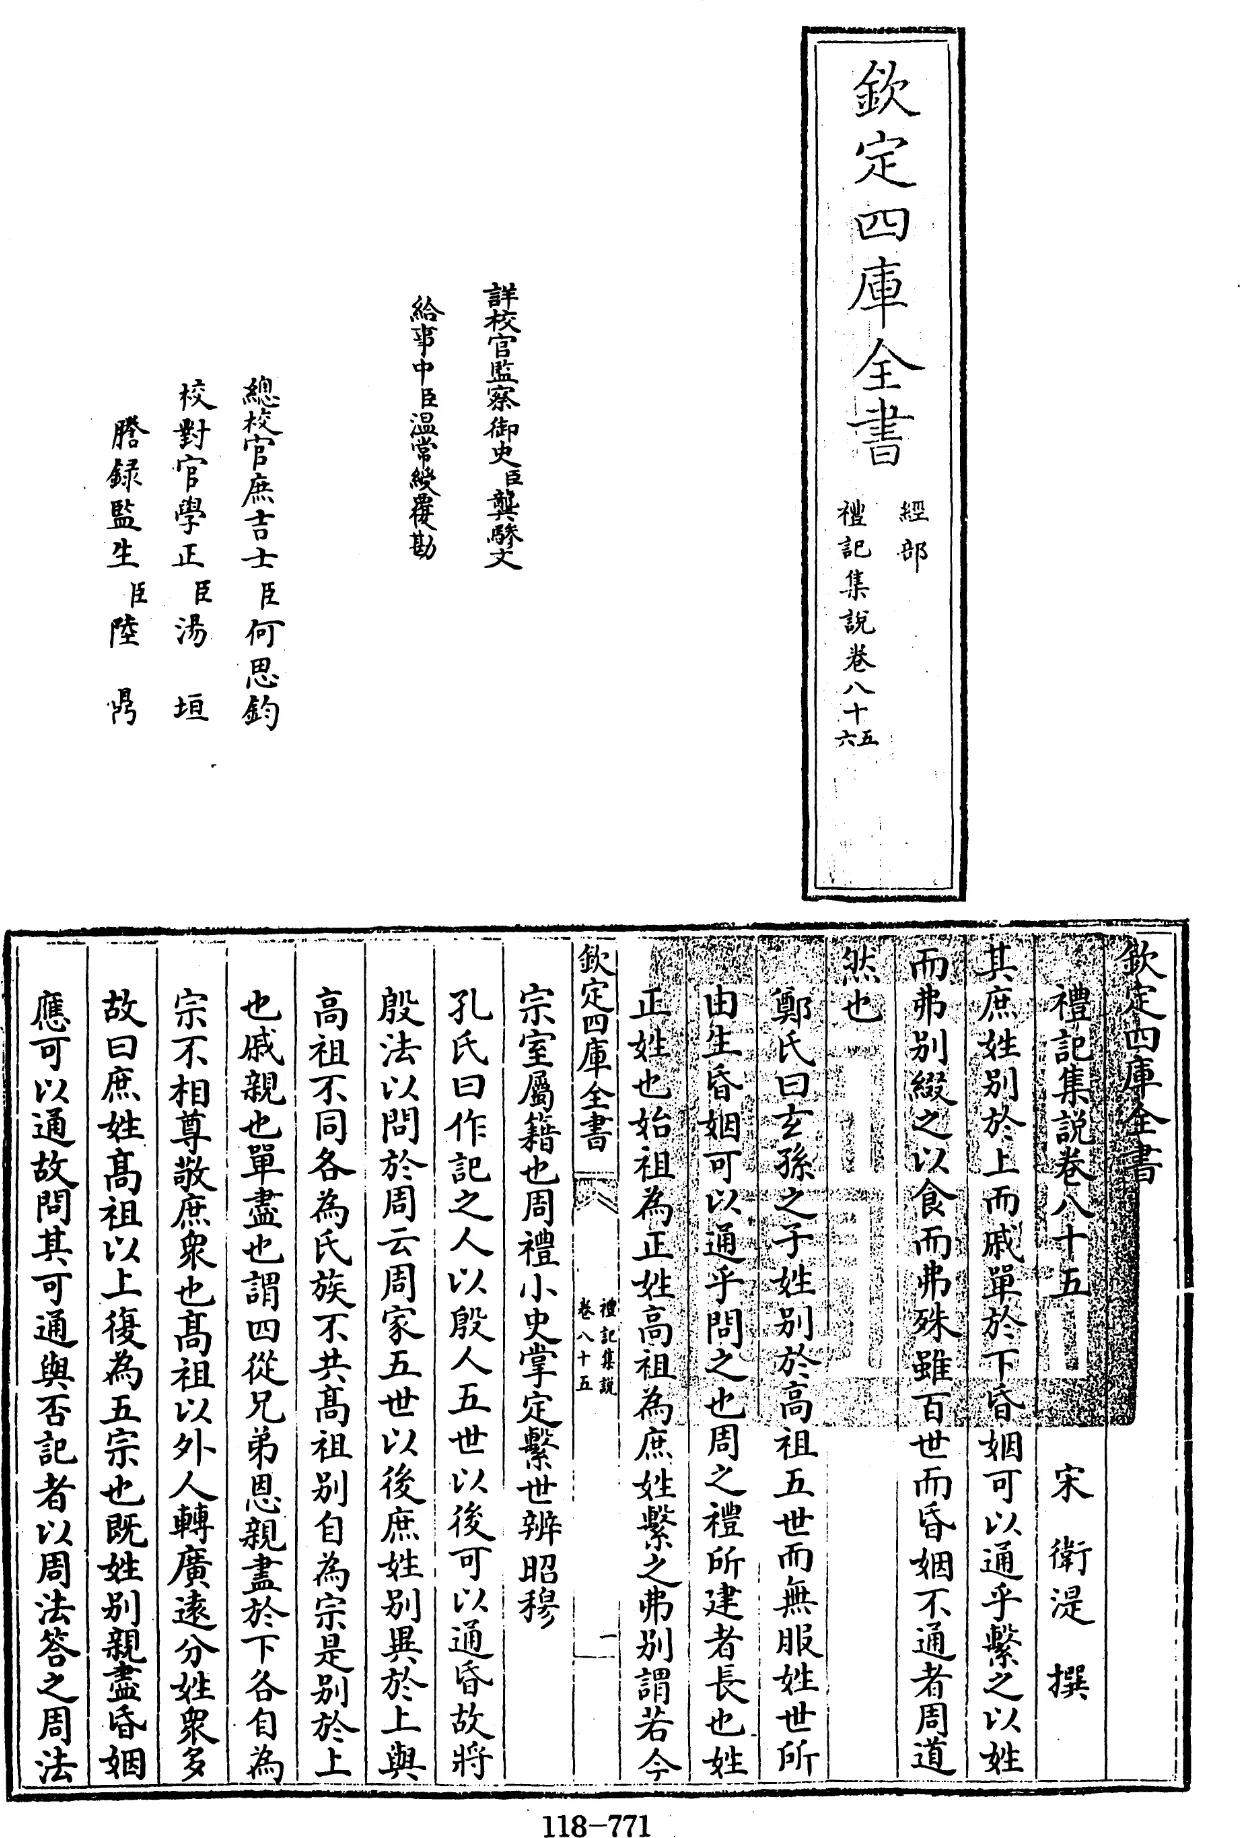 欽定四庫全書
經部
禮記集說卷八十五
六
詳校官監察御史臣龔驂文
給事中臣溫常綬覆勘
總校官庶吉士臣何思鈞
校對官學正臣湯垣
謄録監生臣陸鼎
欽定四庫全書
禮記集說卷八十五
宋衛湜撰
其庶姓别於上而戚單於下昏姻可以通乎繫之以姓
而弗别綴之以食而弗殊雖百世而昏姻不通者周道
然也
鄭氏曰玄孫之子姓别於高祖五世而無服姓世所
由生昏姻可以通乎問之也周之禮所建者長也姓
正姓也始祖為正姓高祖為庶姓繫之弗别謂若今
欽定四庫全書
禮記集說
卷八十五
一
宗室屬籍也周禮小史掌定繫世辨昭穆
孔氏曰作記之人以殷人五世以後可以通昏故將
殷法以問於周云周家五世以後庶姓别異於上與
高祖不同各為氏族不共髙祖别自為宗是别於上
也戚親也單盡也謂四從兄弟恩親盡於下各自為
宗不相尊敬庶衆也髙祖以外人轉廣逺分姓衆多
故曰庶姓髙祖以上復為五宗也既姓别親盡昏姻
應可以通故問其可通與否記者以周法答之周法
118-771